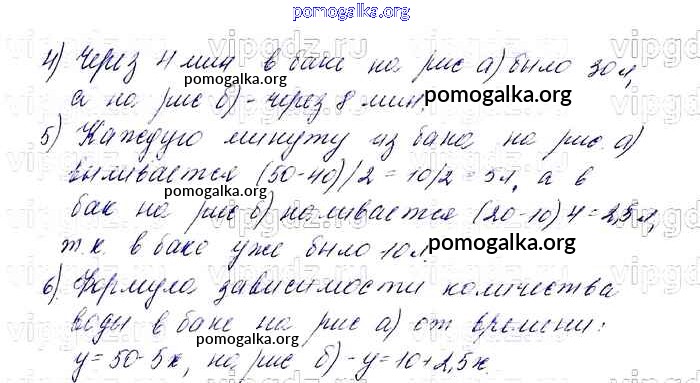 pomogalka.org
4) Через 4 мин в баке на рис а) было 30 л,
pomogalka.org
а на рис б) - через 8 мин.
pomogalka.org
5) Каждую минуту из бака на рис. а)
выливается (50-40)/2 = 10/2 = 5л, а в
pomogalka.org
бак на рис б) наливается (20-10) 4 = 2,5 л,
т.к. в баке уже было 10 л
pomogalka.org
6) Формула зависимости количества
воды в баке на рис а) от времени:
pomogalka.org
y = 50-5x, на рис б) - y = 10+2,5x
pomogalka.org
vipgdz.ru